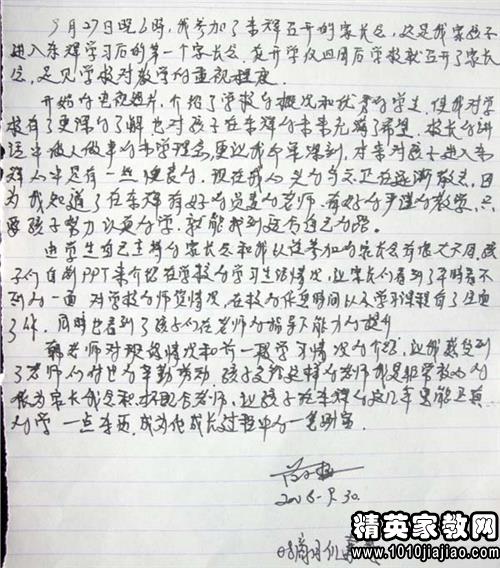 9月27日晚6时,我参加了东辉召开的家长会,这是我家孩子
进入东辉学习后的第一个家长会,更开学仅四周后学校就召开了家长
会,足见学校对教学的重视程度。
开始的电视短片,介绍了学校的概况和优秀的学生,使我对学
校有了更深的了解也对孩子在东辉的未来充满了希望。校长的讲
话中做人做事的办学理念,更让我印象深刻,本来对孩子进入东
辉心中还有一些,现在我的在逐渐,因
为我知道了在东辉有好的负责的老师,有好的严谨的教学,只
要孩子努力认真的学,就能找到适合自己的路。
由学生自己主持的家长会和我以往参加的家长会有很大不同,孩
子们自制PPT来介绍在学校的学习生活情况,让家长们看到了平时看不
到的一面 对学校的师资情况,在校的作息时间以及学习课程有了全面
了解。同时也看到了孩子们在老师的指导下能力的提升
韩老师对班级情况和前一段学习情况的介绍,让我感受到
了老师们付出的辛勤劳动,孩子交给这样的老师我是非常放心的
做为家长我会积极配合老师,让孩子在东辉的这几年里能认真
的学一点东西,成为他成长过程中的一笔财富。
30.
精英家教网
www.1010jiajiao.com